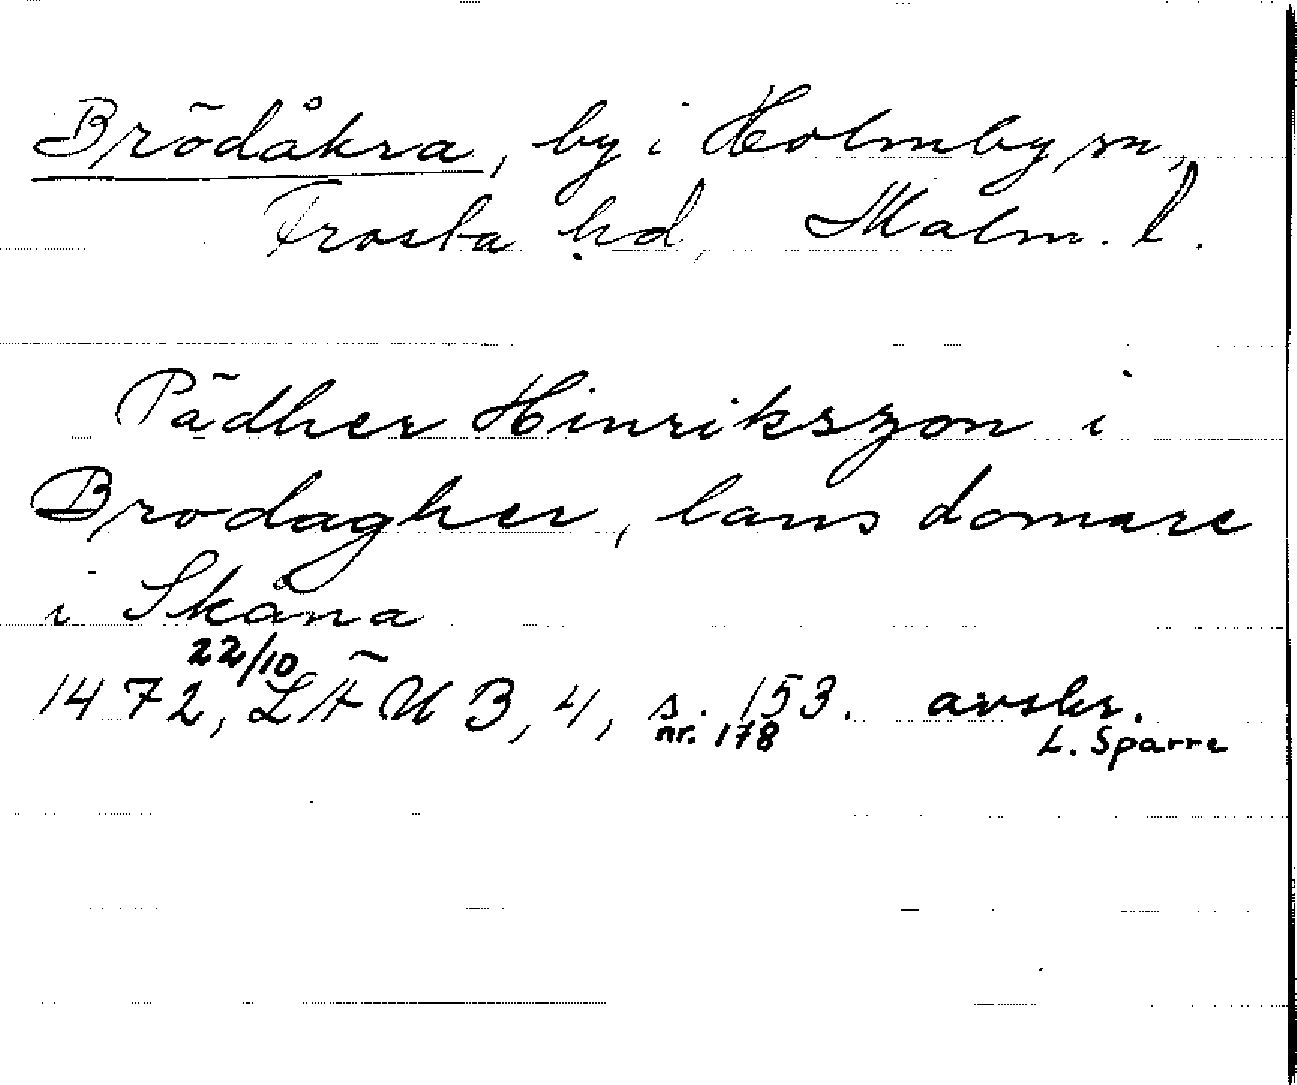 Brödåkra, by i Holmby sn,
Frosta hd, Malm. l.
Pädher Hinrikszon i
Brodagher, lans domare
i Skåna
22/10
1472, LÄUB, 4, s. 153. avskr.
nr. 178 L. Sparre